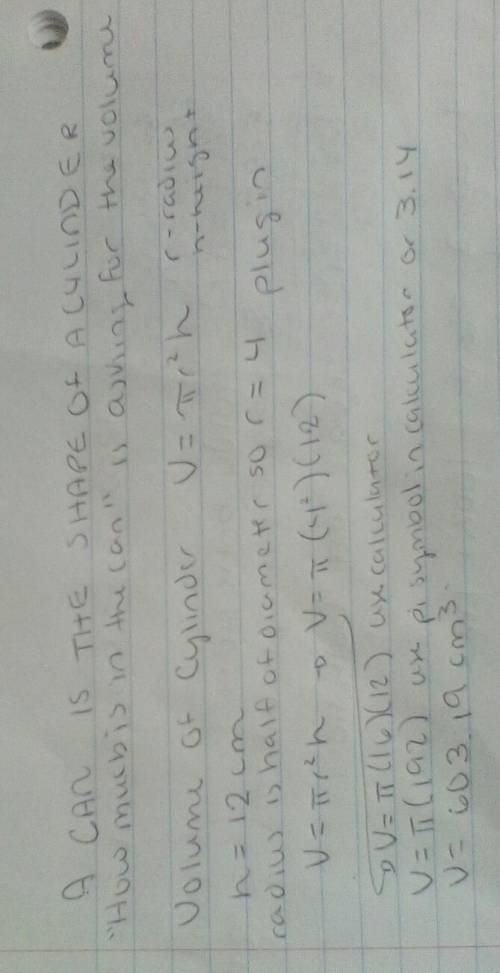 A CAN IS THE SHAPE OF A CYLINDER
"How much is in the can" is asking for the volume
Volume of Cylinder V = πr²h r-radius
h-height
h = 12 cm
radius is half of diameter so r = 4 plug in
V = πr²h → V = π(4²)(12)
→ V = π(16)(12) use calculator
V = π(192) use pi symbol in calculator or 3.14
V = 603.19 cm³.